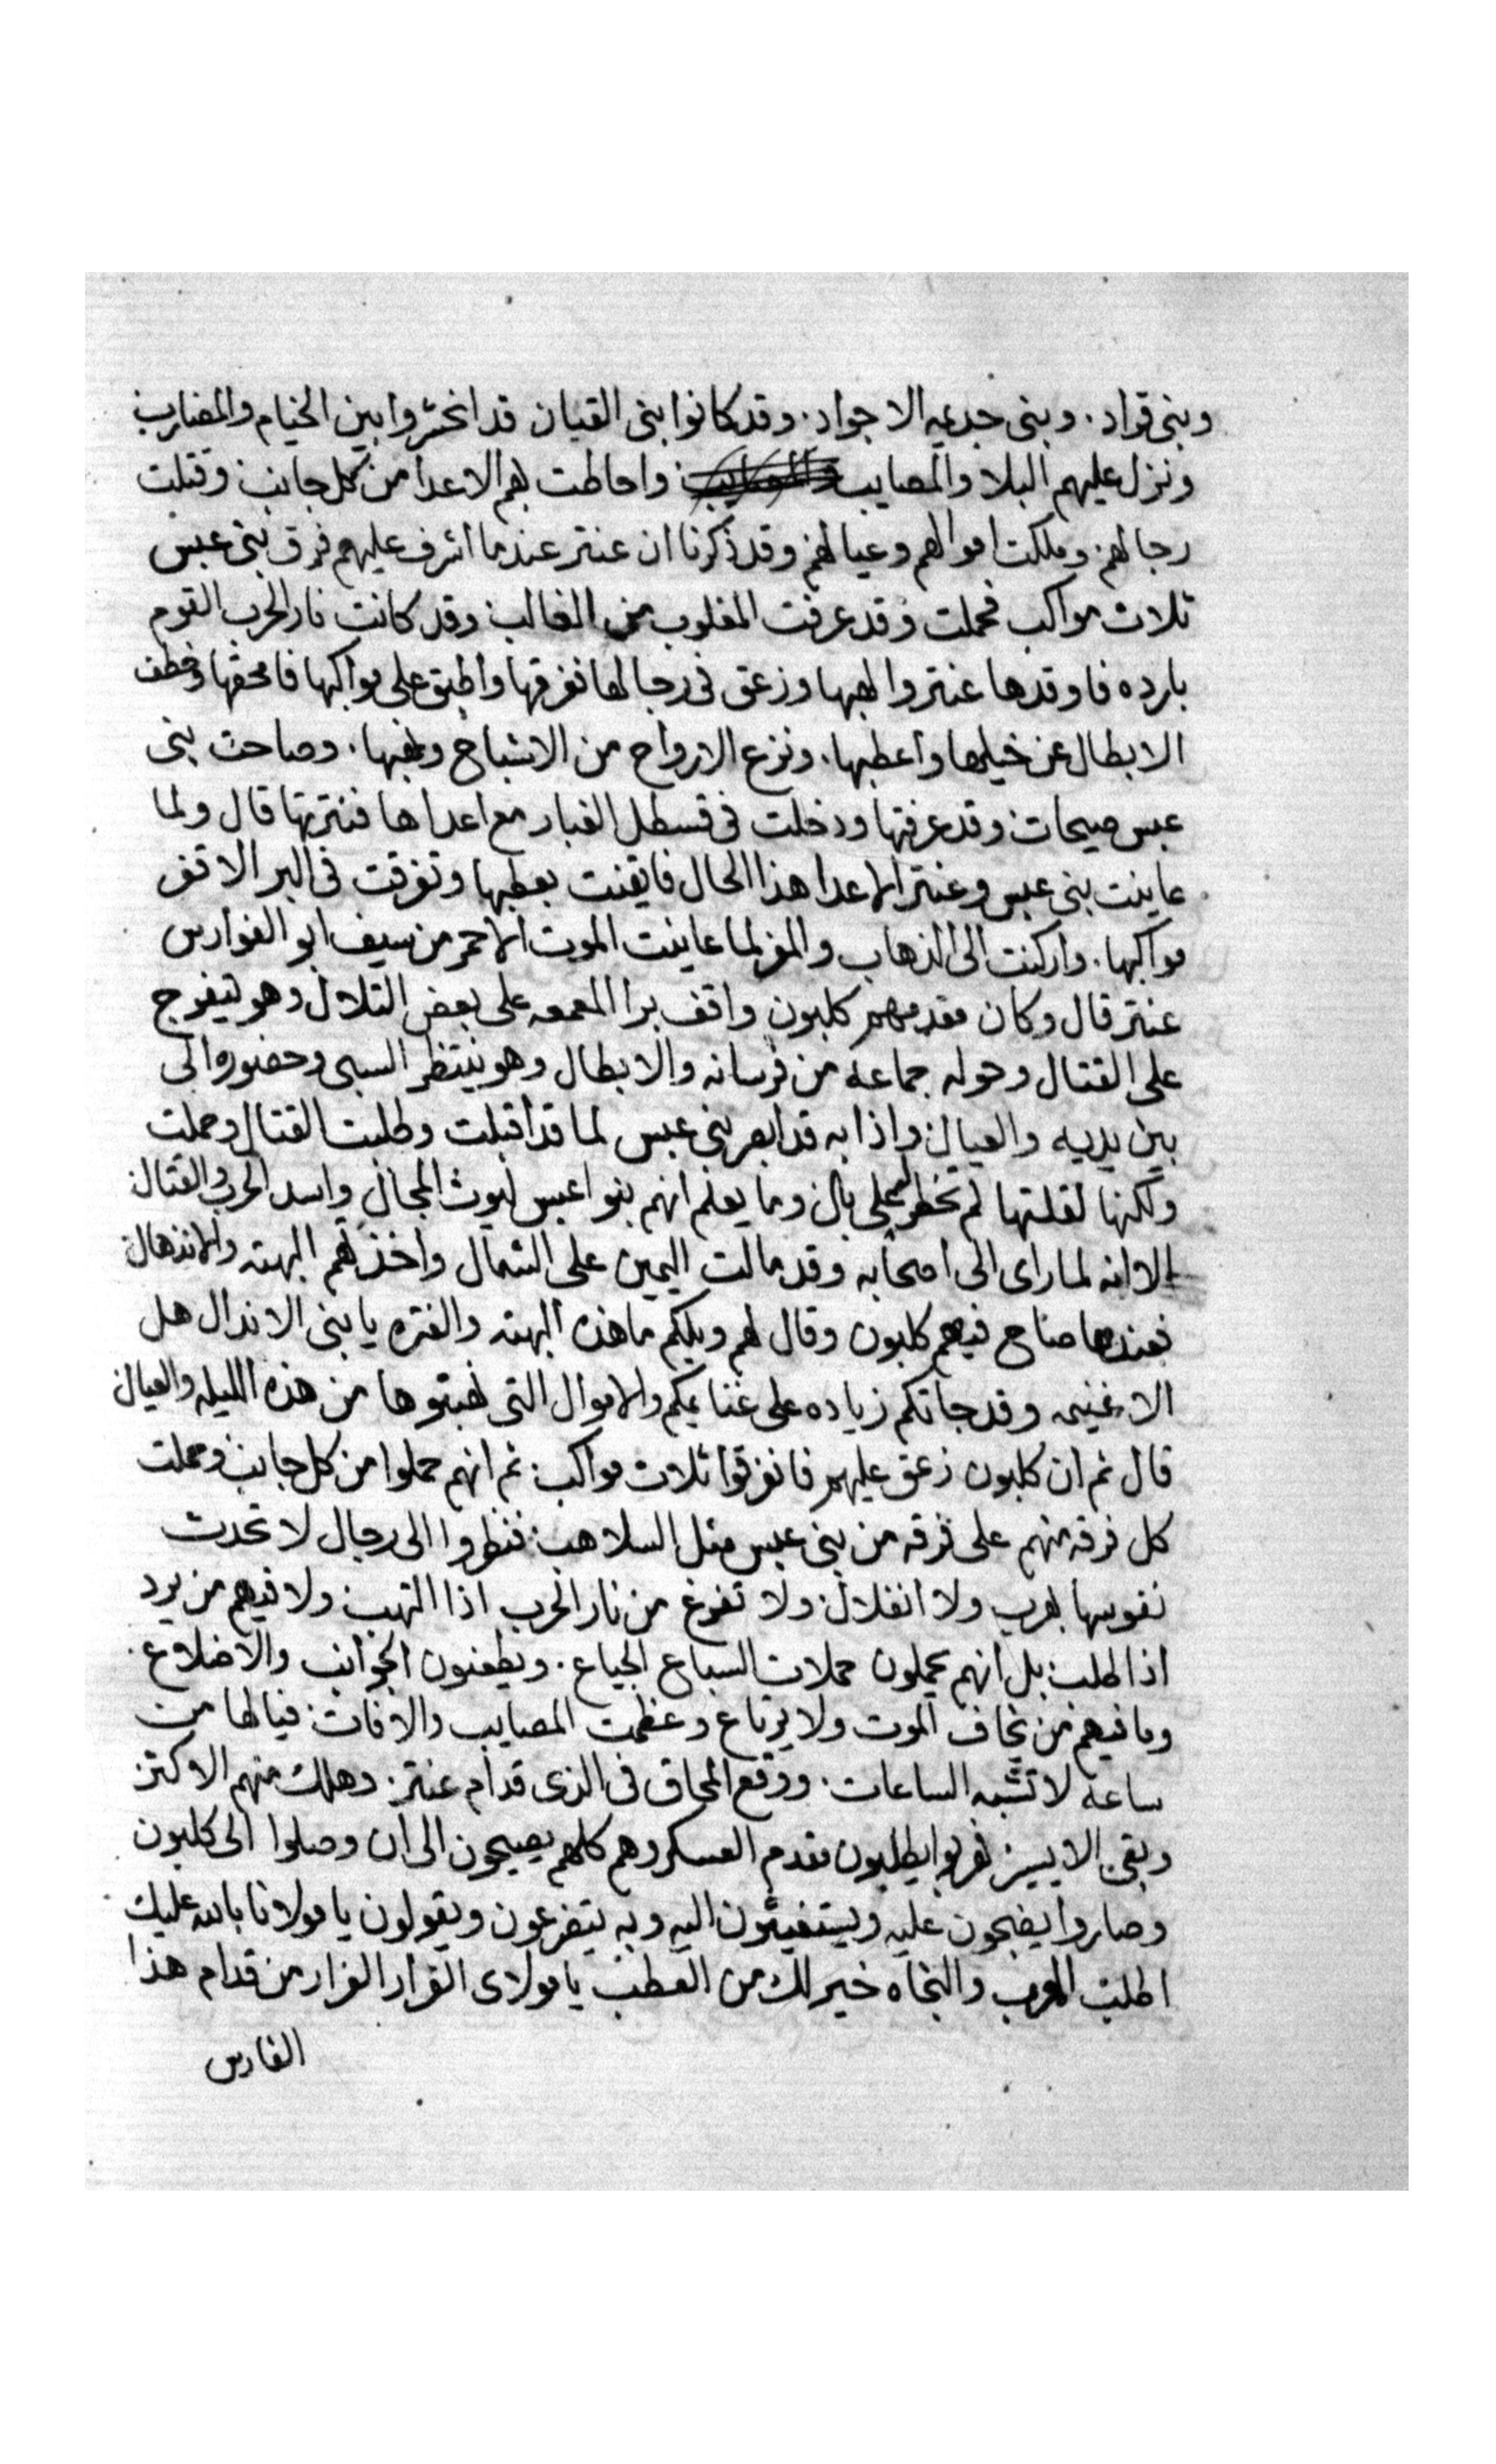 وبنى قراد . وبنى جديمه الاجواد . وقد كانوا بنى القيان قد انحشروا بين الخيام والمضارب
ونزل عليهم البلا والمصايب واحاطت بهم الاعدا من كل جانب وقتلت
رجالهم وملكت اموالهم وعيالهم وقد ذكرنا ان عنتر عندما اشرف عليهم فرق بنى عبس
ثلاث مواكب فحملت وقد عرفت المغلوب من الغالب وقد كانت نار الحرب القوم
بارده فاوقدها عنتر والهبها وزعق فى رجالها ففرقها واطبق على مواكبها فامحقها وخطف
الابطال عن خيلها واعطبها . ونزع الارواح من الاشباح ونهبها . وصاحت بنى
عبس صيحات وقد عرفتها ودخلت فى قسطل الغبار مع اعداها فنترتها قال ولما
عاينت بنى عبس وعنتر الاعدا هذا الحال فايقنت بعطبها وتفرقت فى البر الاقفر
مواكبها . واركنت الى الذهاب والمفر لما عاينت الموت الاحمر من سيف ابو الفوارس
عنتر قال وكان مقدمهم كلبون واقف برا المعمعه على بعض التلال وهو ليفرج
على القتال وحوله جماعه من فرسانه والابطال وهو ينتظر السبى وحضوره الى
بين يديه والعيال واذا به قد ابصر بنى عبس لما قد اقبلت وطلبت القتال وحملت
ولكنها لقلتها لم تخطر على بال وما يعلم انهم بنوا عبس ليوث المجال واسد الحرب والقتال
الا انه لما راى الى اصحابه وقد مالت اليمين على الشمال واخذهم البهته والاندهال
فعندها صاح فيهم كلبون وقال لهم ويلكم ما هذه البهته والفتره يا بنى الاندال هل
الا غنيمه وقد جاتكم زياده على غنايمكم والاموال التى نهبتوها من هذه الليله والعيال
قال ثم ان كلبون زعق عليهم فانفرقوا ثلاث مواكب ثم انهم حملوا من كل جانب وحملت
كل فرقه منهم على فرقه من بنى عبس مثل السلاهب فنظروا الى رجال لا تحدث
نفوسها بهرب ولا انفلال ولا تفرغ من نار الحرب اذا التهب ولا فيهم من يرد
اذا طلب بل انهم يحملون حملات السباع الجياع . ويطعنون الجوانب والاضلاع .
وما فيهم من يخاف الموت ولا يرتاع وعظمت المصايب والافات فيالها من
ساعه لا تشبه الساعات . ووقع المحاق فى الذى قدام عنتر . وهلك منهم الاكثر
وبقى الايسير فهربوا يطلبون مقدم العسكر وهم كلهم يصيحون الى ان وصلوا الى كلبون
وصاروا يضجون عليه ويستغيثون اليه وبه يتضرعون ويقولون يا مولانا بالله عليك
اطلب الهرب والنجاه خير لك من العطب يا مولاى الفرار الفرار من قدام هذا
الفارس